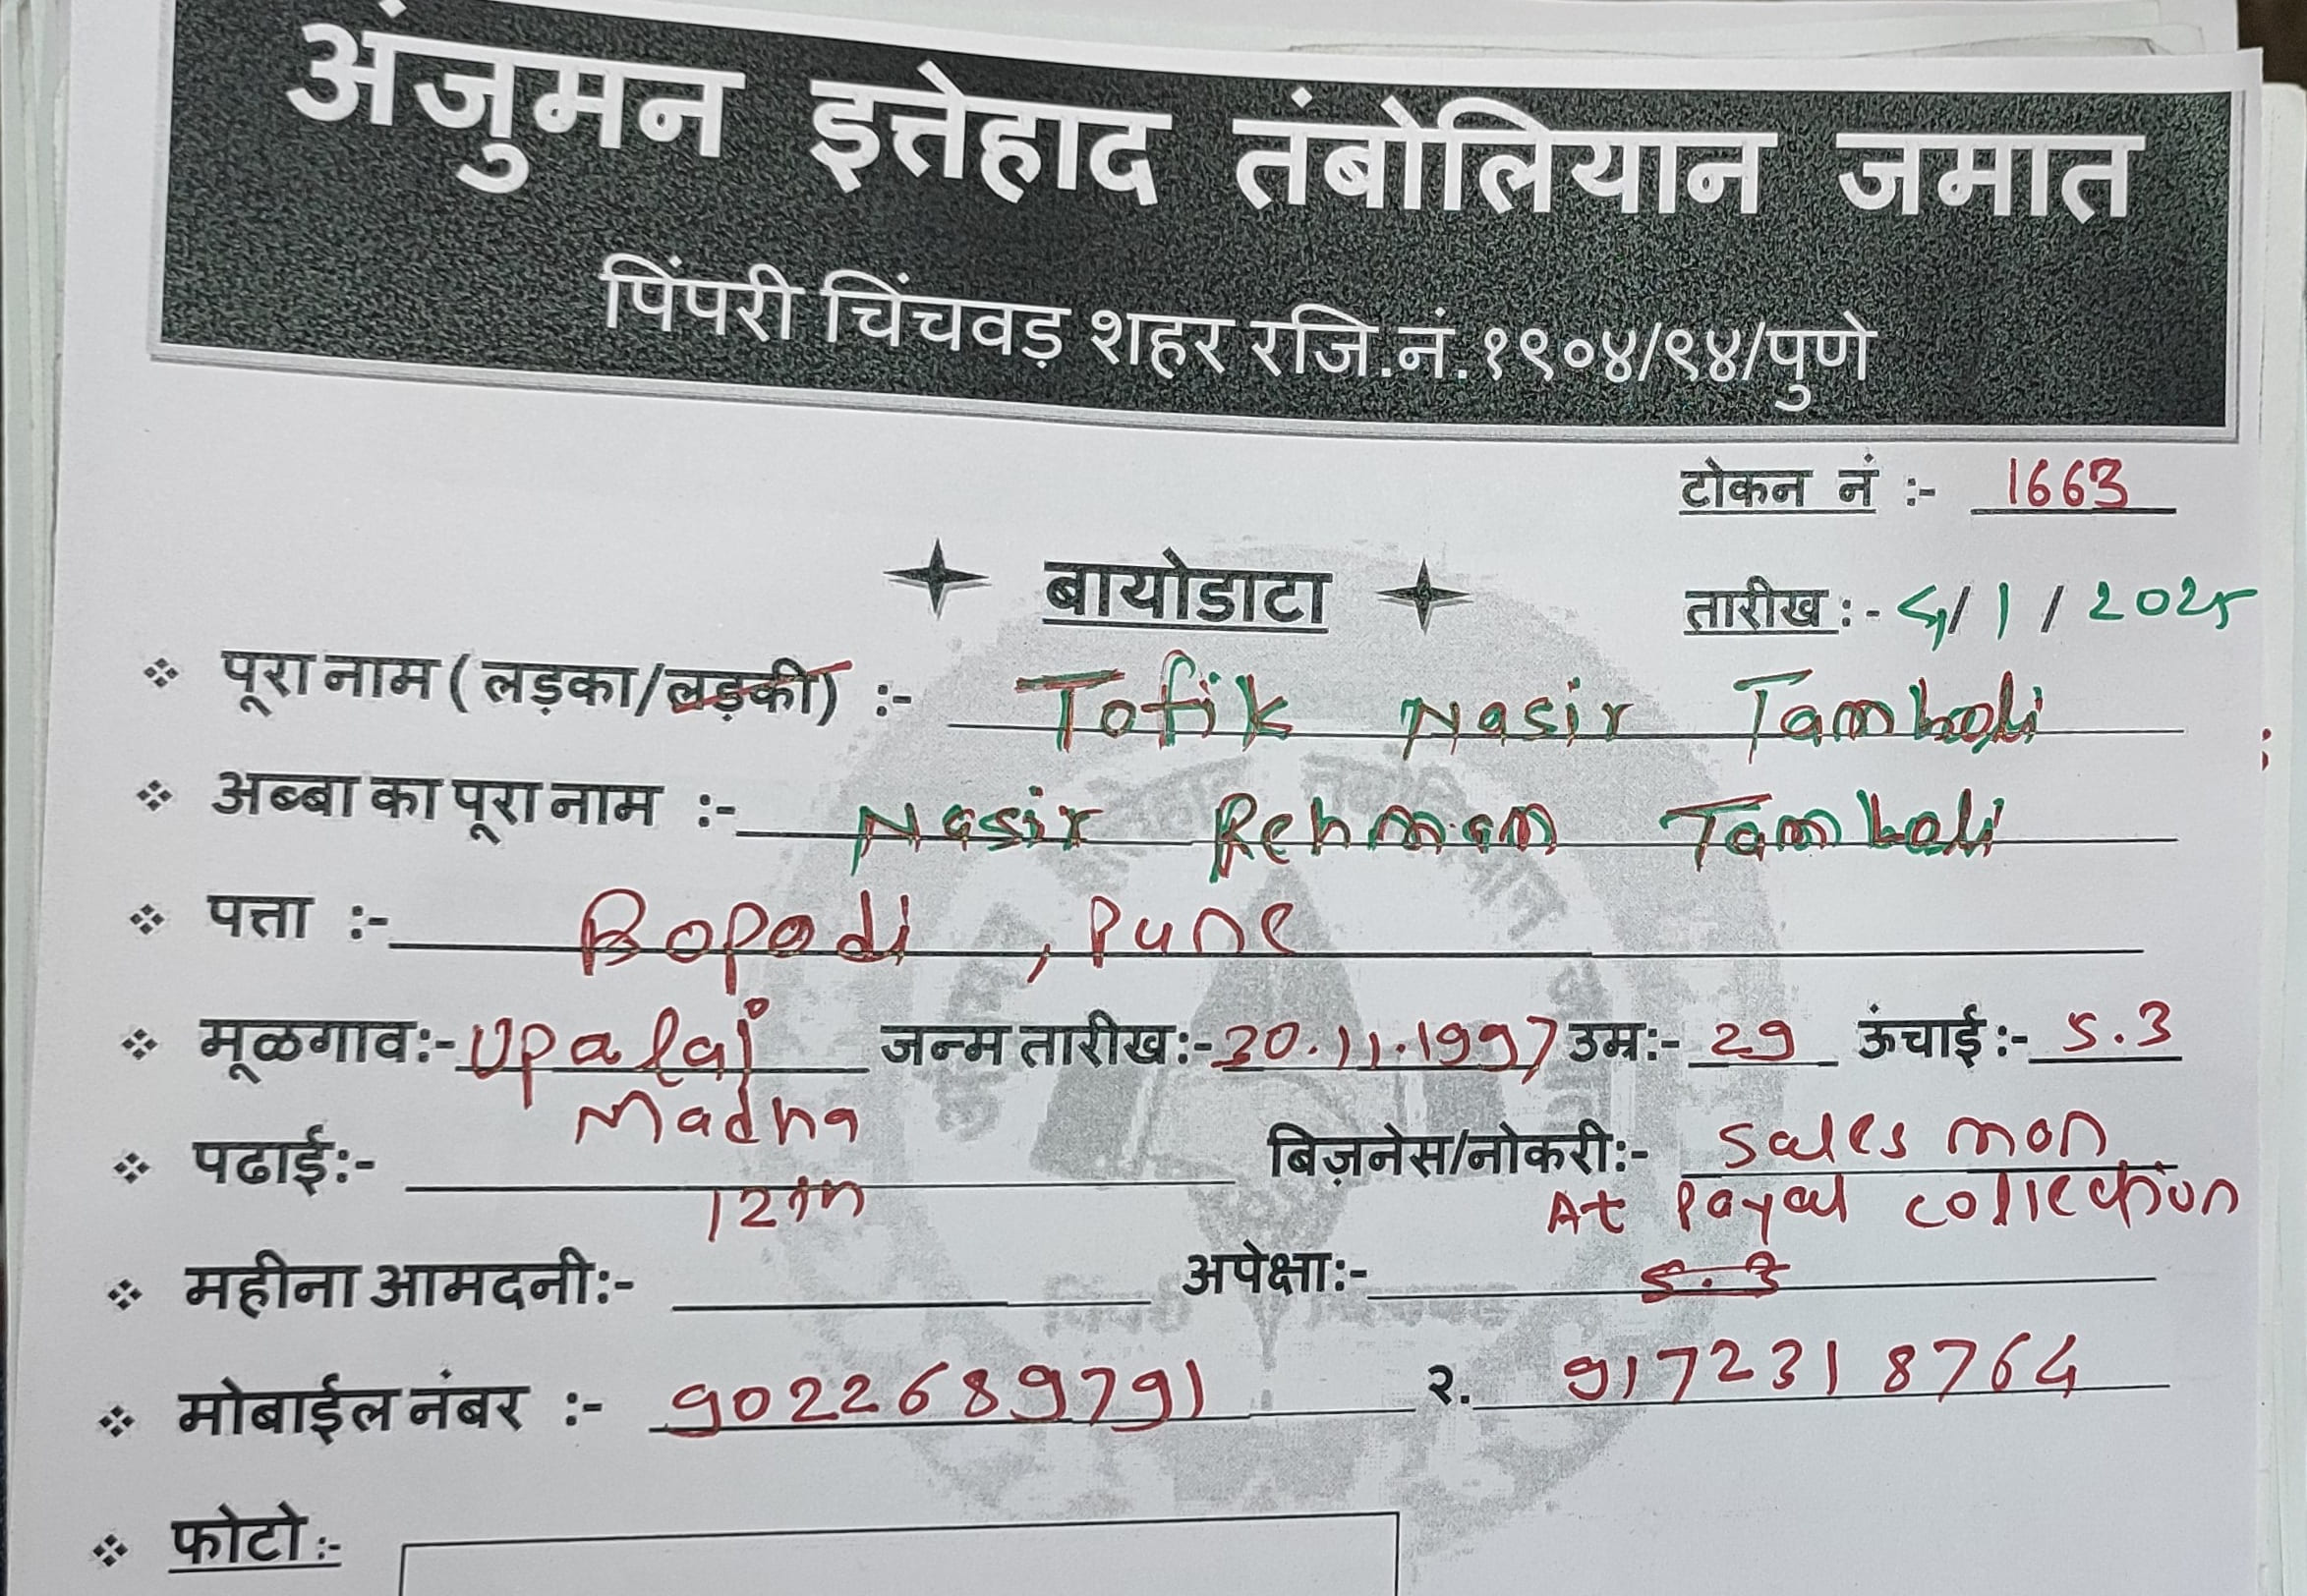 अंजुमन इत्तेहाद तंबोलियान जमात
पिंपरी चिंचवड़ शहर रजि.नं.१९०४/९४/पुणे
टोकन नं :- 1663
बायोडाटा
तारीख :- 4/1/2025
पूरा नाम ( लड़का/लड़की) :- Tofik Nasir Tamboli
अब्बा का पूरा नाम :- Nasir Rehman Tamboli
पत्ता :- Bopodi, Pune
मूळगाव:- Upalai जन्म तारीख:- 20.11.1997 उम्र:- 29 ऊंचाई:- 5.3
Madha
पढाई:- बिज़नेस/नोकरी:- Sales man
12th At Payal collection
महीना आमदनी:- अपेक्षा:- 5.3
मोबाईल नंबर :- 9022689791 २. 9172318764
फोटो :-